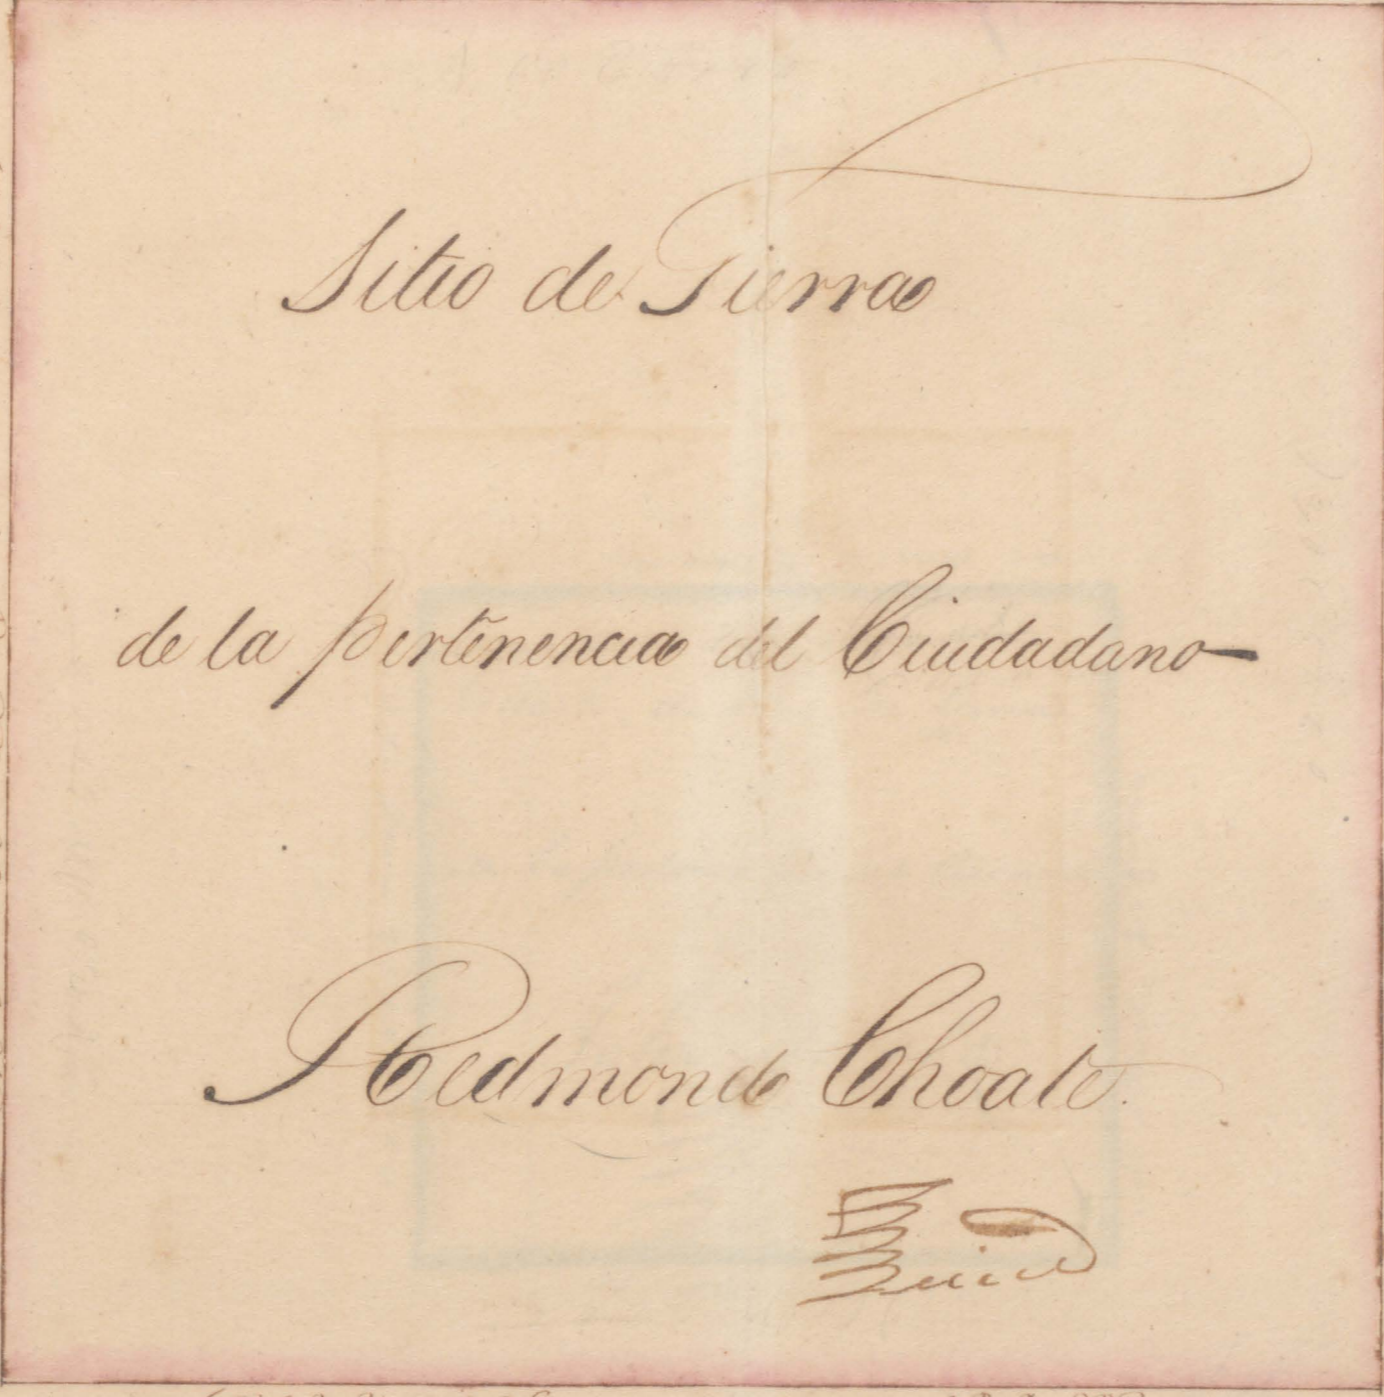 Sitio de Tierra
de la pertenencia del Ciudadano
Redmond Choate.